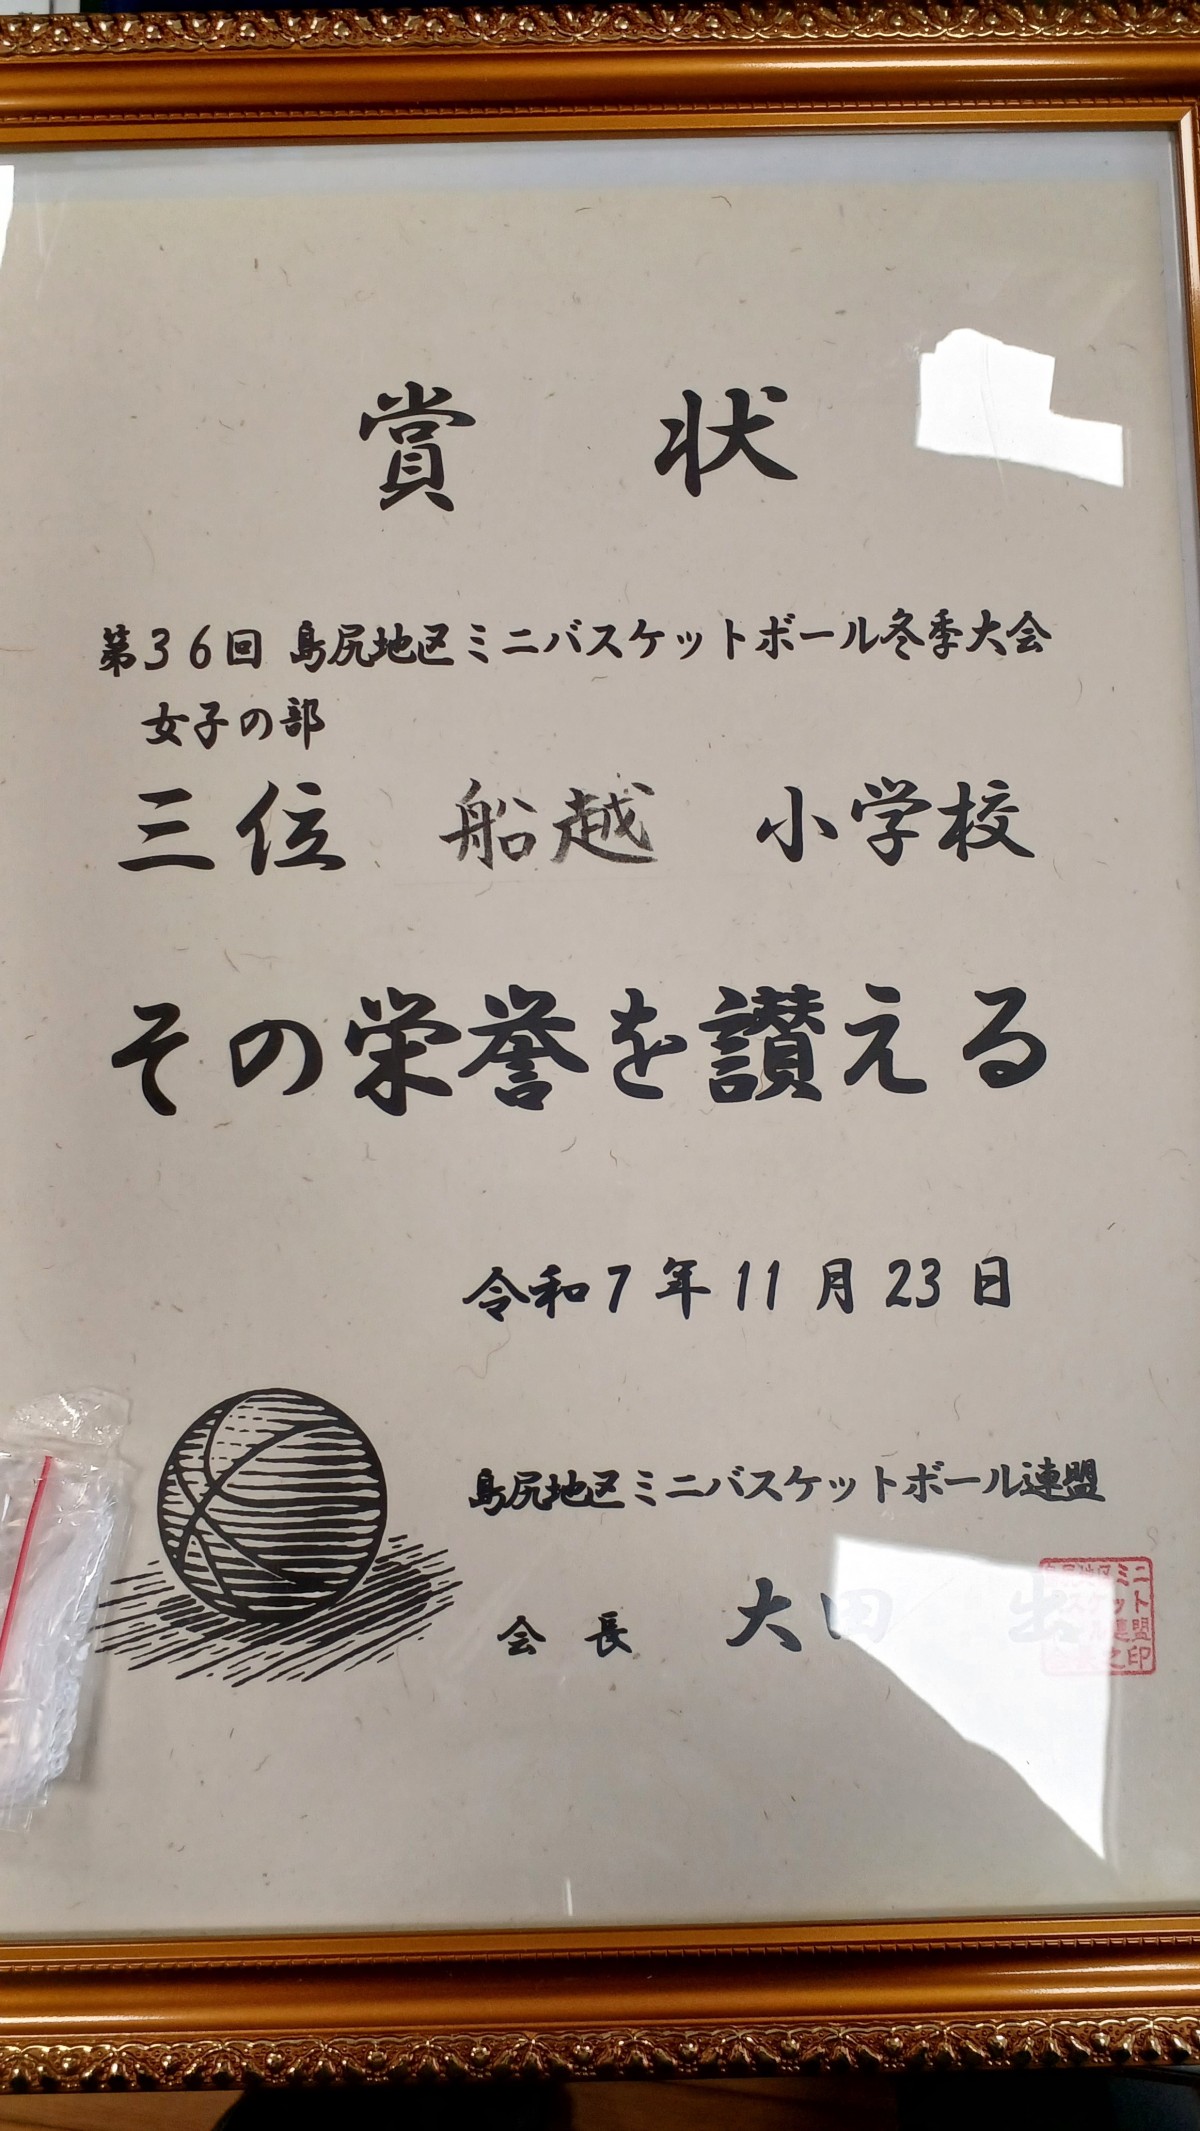 賞状
第36回 島尻地区ミニバスケットボール冬季大会
女子の部
三位 船越 小学校
その栄誉を讃える
令和7年11月23日
島尻地区ミニバスケットボール連盟
会長 大田